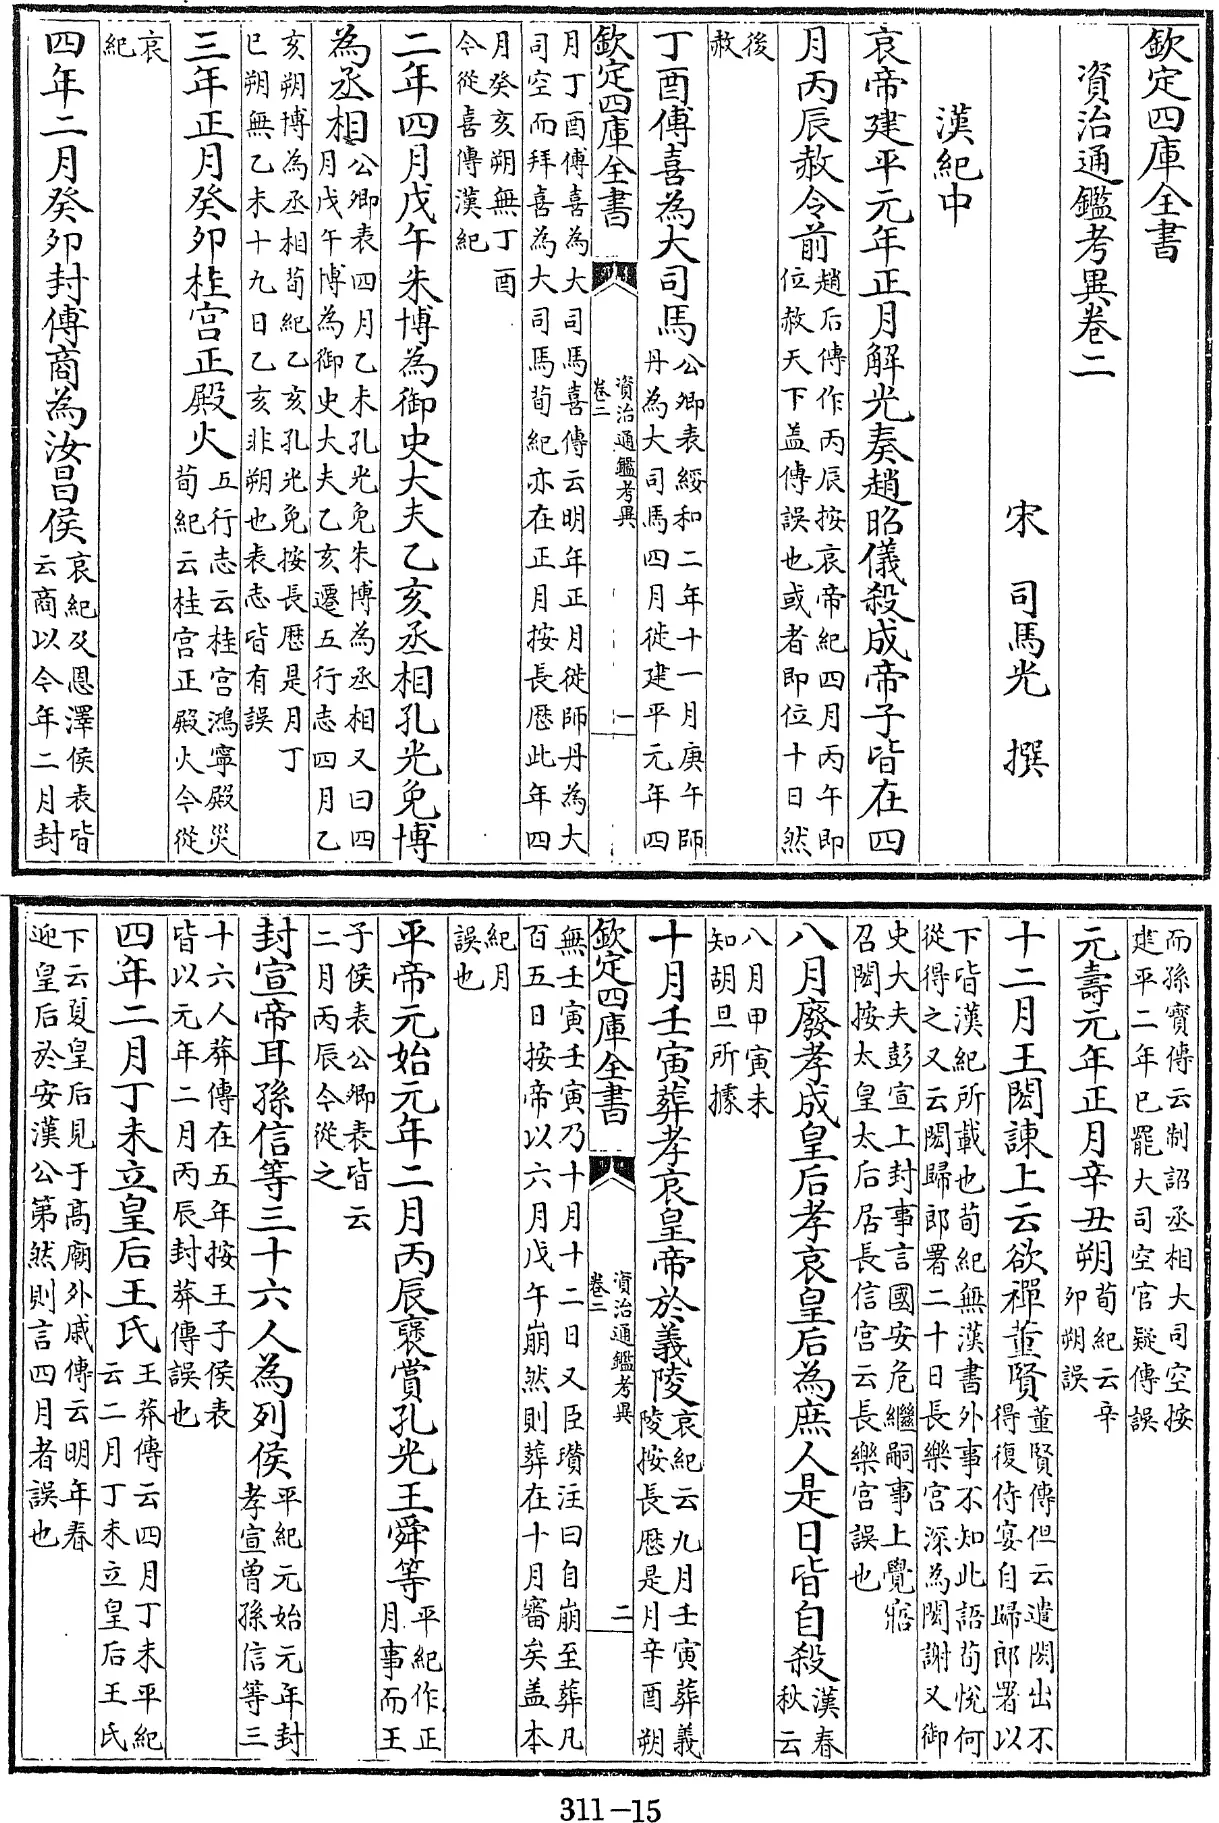 欽定四庫全書
資治通鑑考異卷二
宋 司馬光 撰
漢紀中
哀帝建平元年正月解光奏趙昭儀殺成帝子皆在四
月丙辰赦令前趙后傳作丙辰按哀帝紀四月丙午即位赦天下盖傳誤也或者即位十日然
後赦
丁酉傅喜為大司馬公卿表綏和二年十一月庚午師丹為大司馬四月徙建平元年四
欽定四庫全書 資治通鑑考異 卷二 一
月丁酉傅喜為大司馬喜傳云明年正月徙師丹為大司空而拜喜為大司馬荀紀亦在正月按長歴此年四
月癸亥朔無丁酉令從喜傳漢紀
二年四月戊午朱博為御史大夫乙亥丞相孔光免博
為丞相公卿表四月乙未孔光免朱博為丞相又曰四月戊午博為御史大夫乙亥遷五行志四月乙
亥朔博為丞相荀紀乙亥孔光免按長歴是月丁巳朔無乙未十九日乙亥非朔也表志皆有誤
三年正月癸卯桂宮正殿火五行志云桂宮鴻寧殿災荀紀云桂宮正殿火今從
哀紀
四年二月癸卯封傅商為汝昌侯哀紀及恩澤侯表皆云商以今年二月封
而孫寶傳云制詔丞相大司空按建平二年已罷大司空官疑傳誤
元壽元年正月辛丑朔荀紀云辛卯朔誤
十二月王閎諫上云欲禪董賢董賢傳但云遣閎出不得復侍宴自歸郎署以
下皆漢紀所載也荀紀無漢書外事不知此語荀悅何從得之又云閎歸郎署二十日長樂宮深為閎謝又御
史大夫彭宣上封事言國安危繼嗣事上覺寤召閎按太皇太后居長信宮云長樂宮誤也
八月廢孝成皇后孝哀皇后為庶人是日皆自殺漢春秋云
八月甲寅未知胡旦所據
十月壬寅葬孝哀皇帝於義陵哀紀云九月壬寅葬義陵按長歴是月辛酉朔
欽定四庫全書 資治通鑑考異 卷二 二
無壬寅壬寅乃十月十二日又臣瓚注曰自崩至葬凡百五日按帝以六月戊午崩然則葬在十月審矣盖本
紀月誤也
平帝元始元年二月丙辰襃賞孔光王舜等平紀作正月事而王
子侯表公卿表皆云二月丙辰今從之
封宣帝耳孫信等三十六人為列侯平紀元始元年封孝宣曾孫信等三
十六人莽傳在五年按王子侯表皆以元年二月丙辰封莽傳誤也
四年二月丁未立皇后王氏王莽傳云四月丁未平紀云二月丁未立皇后王氏
下云夏皇后見于高廟外戚傳云明年春迎皇后於安漢公第然則言四月者誤也
311-15